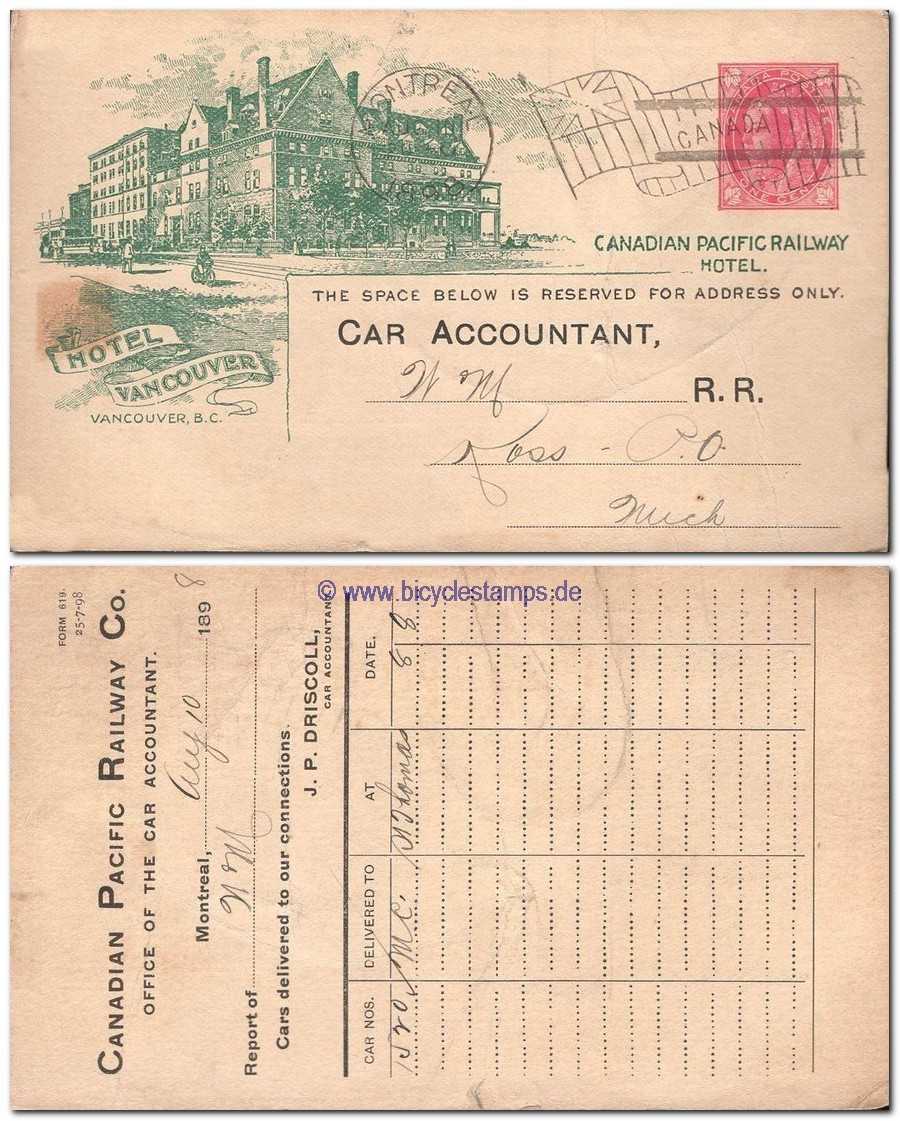 MONTREAL
CANADA
CANADA POSTAGE
ONE CENT
CANADIAN PACIFIC RAILWAY
HOTEL.
THE SPACE BELOW IS RESERVED FOR ADDRESS ONLY.
CAR ACCOUNTANT,
R. R.
P.O.
Mich
HOTEL
VANCOUVER
VANCOUVER, B.C.
© www.bicyclestamps.de
FORM 619.
25-7-98
CANADIAN PACIFIC RAILWAY CO.
OFFICE OF THE CAR ACCOUNTANT.
Montreal, Aug 10 1898
Report of N M
Cars delivered to our connections.
J. P. DRISCOLL,
CAR ACCOUNTANT
CAR NOS. DELIVERED TO AT DATE.
1520 M.C. St Thomas 8 8